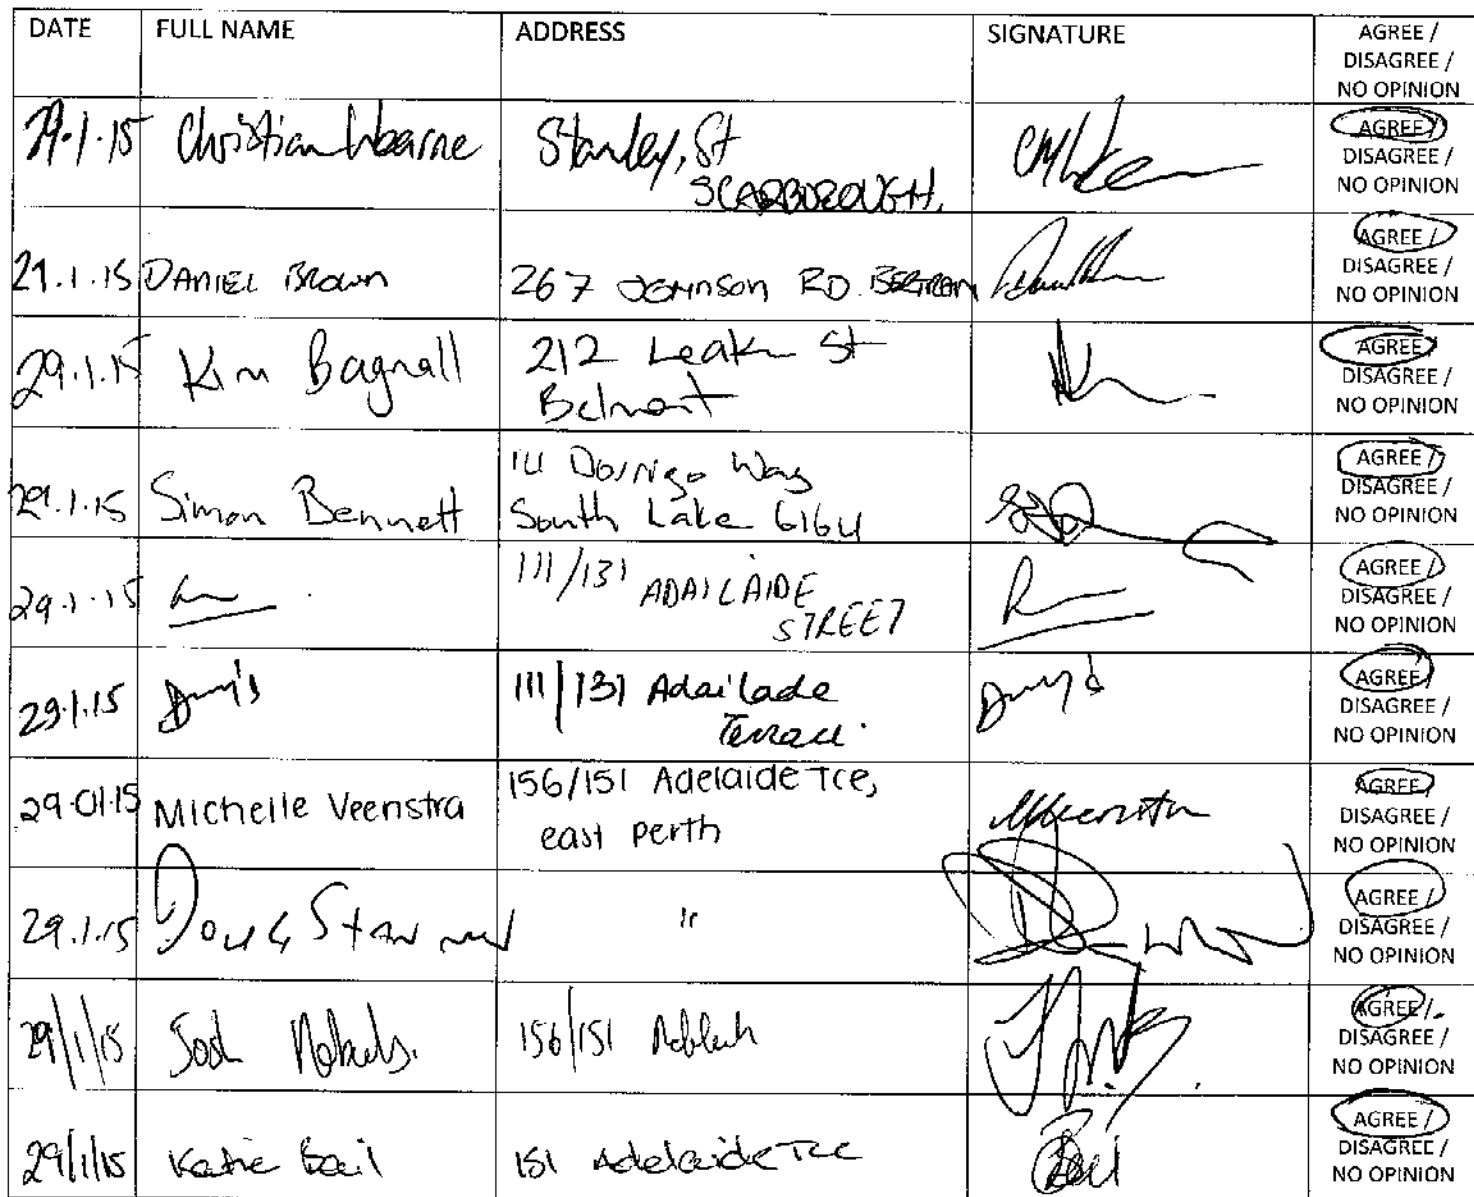 DATE FULL NAME ADDRESS SIGNATURE AGREE /
DISAGREE /
NO OPINION
29.1.15 Christian Wearne Stanley, St AGREE /
SCARBOROUGH. DISAGREE /
NO OPINION
29.1.15 DANIEL BROWN 267 JOHNSON RD. BERTRAM AGREE /
DISAGREE /
NO OPINION
29.1.15 Kim Bagnall 212 Leake St AGREE /
Belmont DISAGREE /
NO OPINION
29.1.15 Simon Bennett 14 Dorrigo Way AGREE /
South Lake 6164 DISAGREE /
NO OPINION
29.1.15 111/131 ADAILAIDE AGREE /
STREET DISAGREE /
NO OPINION
29.1.15 111/131 Adailade AGREE /
Terrace. DISAGREE /
NO OPINION
29.01.15 Michelle Veenstra 156/151 Adelaide Tce, AGREE /
east perth DISAGREE /
NO OPINION
29.1.15 Doug " AGREE /
DISAGREE /
NO OPINION
29/1/15 Josh 156/151 AGREE /
DISAGREE /
NO OPINION
29/1/15 Katie Bail 151 Adelaide Tce AGREE /
DISAGREE /
NO OPINION